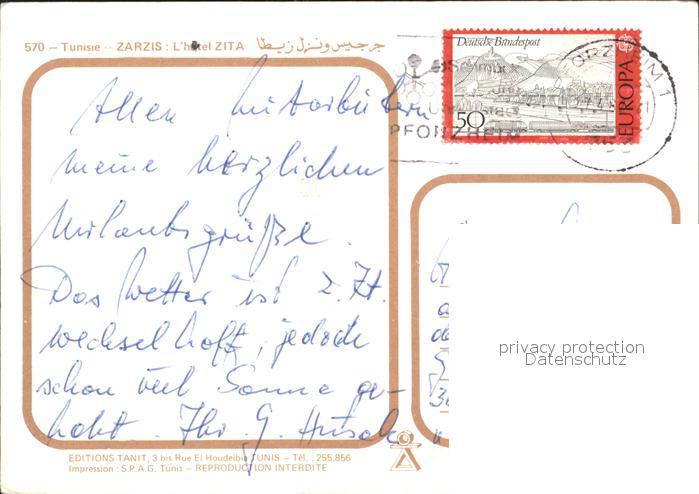 570 – Tunisie – ZARZIS : L'hôtel ZITA جرجيس ونزل زيطا
Deutsche Bundespost
50
EUROPA
PFORZHEIM
PFORZHEIM 1
Allen Mitarbeitern
meine herzlichen
Urlaubsgrüße.
Das Wetter ist z. Zt.
wechselhaft, jedoch
schon viel Sonne ge-
habt. Ihr G.
privacy protection
Datenschutz
EDITIONS TANIT, 3 bis Rue El Houdeibia TUNIS – Tél. : 255.856
Impression : S.P.A.G. Tunis – REPRODUCTION INTERDITE